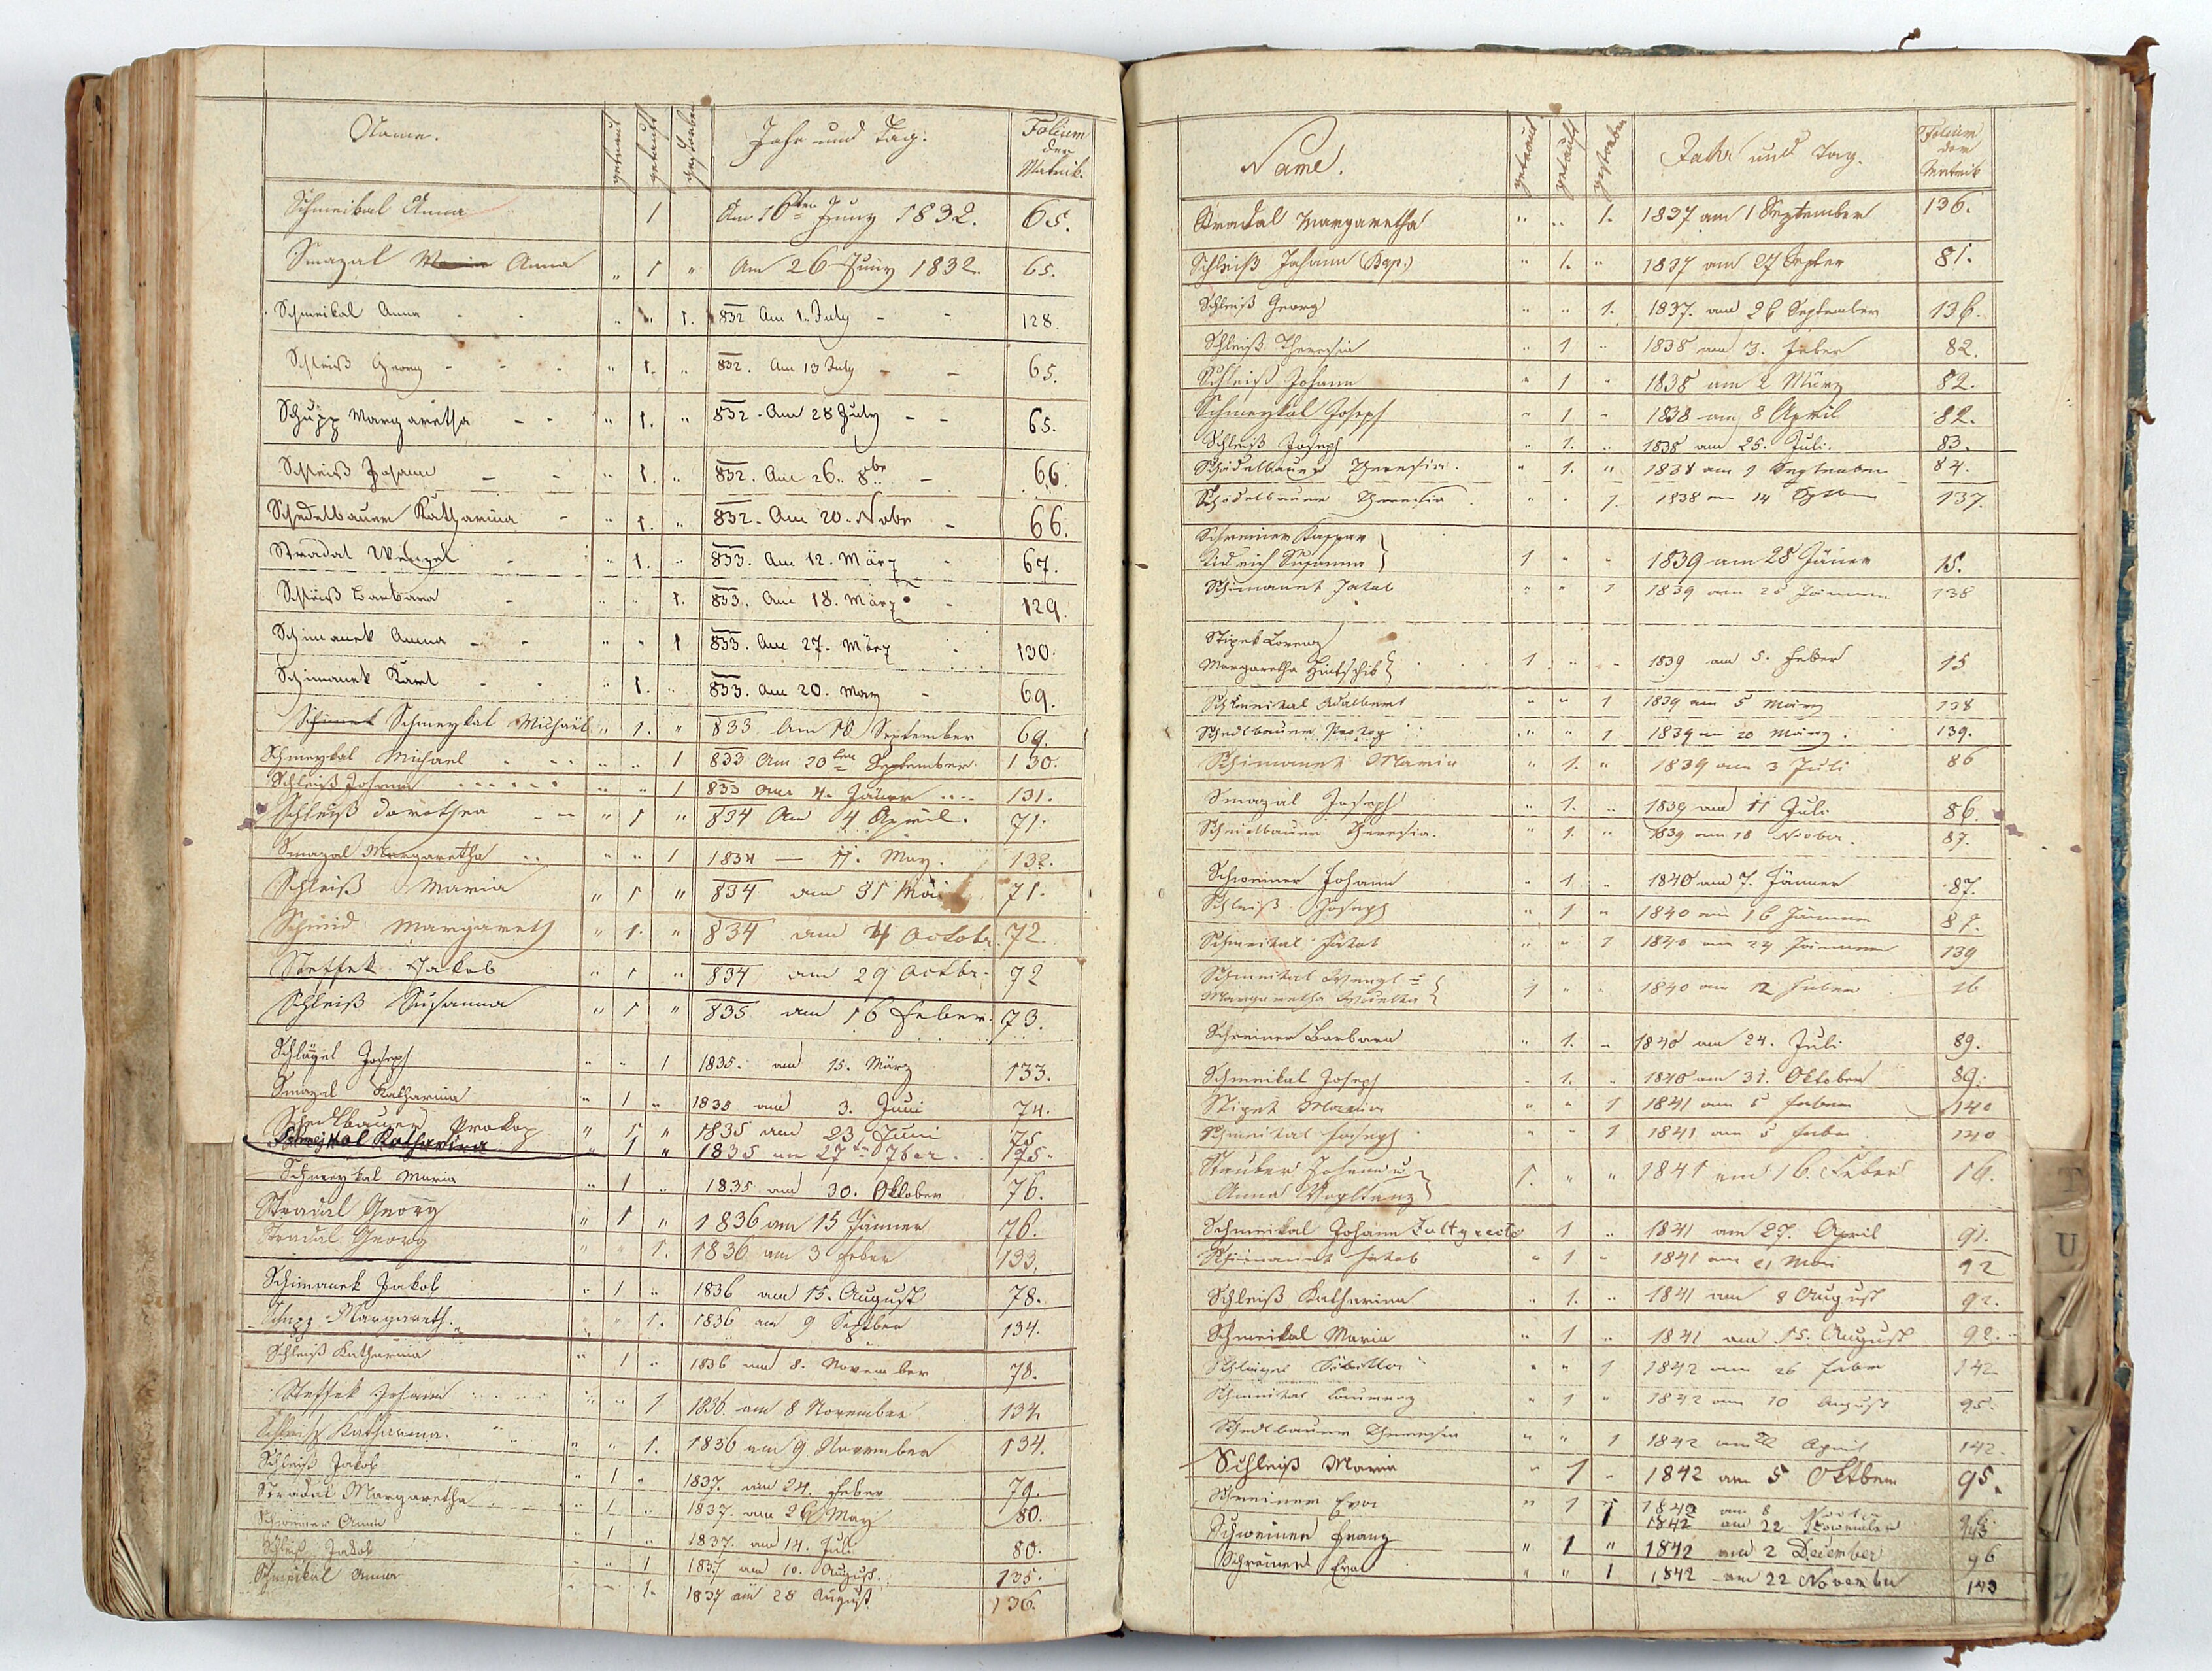 Name. getraut getauft gestorben Jahr und Tag. Folium der Matrik.
Schmeikal Anna 1 Am 16ten Juny 1832. 65.
Smazal Anna " 1 " Am 26 Juny 1832. 65.
Schmeikal Anna - - " " 1. 832 Am 1. July - - 128.
Schleiß Georg - - - " 1. " 832. Am 13 July - - 65.
Schupp Margaretha - - " 1. " 832. Am 28 July - - 65.
Schleiß Johann - - " 1. " 832. Am 26. 8be - 66.
Schedelbauer Katharina - " 1. " 832. Am 20. Nobr - 66.
Stradal Wenzel - " 1. " 833. Am 12. März - 67.
Schleiß Barbara - " " 1. 833. Am 18. März - 129.
Schimanek Anna - - " " 1 833. Am 27. März 130.
Schimanek Karl - - " 1. " 833. Am 20. May - 69.
Schmeykal Michael " 1. " 833 Am 18 September 69.
Schmeykal Michael " " 1 833 Am 20ten September 130.
Schleiß Johann " " 1 833 Am 4. Jäner 131.
Schleiß Dorothea - - " 1 " 834 Am 4 April. 71.
Smazal Margaretha " " 1 1834 — 11. May. 132.
Schleiß Maria " 1 " 834 am 31 Mai 71.
Schmid Margareth " 1. " 834 am 4 Octobr. 72.
Steffek Jakob " 1 " 834 am 29 Octbr. 72
Schleiß Susanna " 1 " 835 am 16 Feber. 73.
Schlägel Joseph " " 1 1835. am 15. März 133.
Smazal Katharina " 1 " 1835 am 3. Juni 74.
Schedlbauer Prokop " 1 " 1835 am 23 Juni 75
Schmeykal Katharina " 1 " 1835 am 27ten 7ber.
Schmeykal Maria " 1 " 1835 am 30. Oktober 76.
Stradal Georg " 1 " 1836 am 15 Jänner 76.
Stradal Georg " " 1. 1836 am 3 Feber 133.
Schimanek Jakob " 1 " 1836 am 15. August 78.
Schupp Margareth. " " 1. 1836 am 9 Septber 134.
Schleiß Katharina " 1 " 1836 am 8. November 78.
Steffek Johann " " 1 1836. am 8 November 134.
Schleiß Katharina. " " 1. 1836 am 9 November 134.
Schleiß Jakob " 1 " 1837. am 24. Feber 79.
Stradal Margaretha " 1 " 1837. am 26 May 80.
Schreiner Anna " 1 " 1837. am 14. Juli 80.
Schleiß Jakob " " 1 1837 am 10. August. 135.
Schmeikal Anna " " 1. 1837 am 28 August 136.
Name. getraut getauft gestorben Jahr und Tag. Folium der Matrik
Stradal Margaretha " " 1. 1837 am 1 September 136.
Schleiß Johann (Bap.) " 1. " 1837 am 27 Septer 81.
Schleiß Georg " " 1. 1837. am 26 September 136.
Schleiß Theresia " 1 " 1838 am 3. Feber 82.
Schleiß Johann " 1 " 1838 am 2 März 82.
Schmeykal Joseph " 1 " 1838 am 8 April 82.
Schleiß Joseph " 1. " 1838 am 25. Juli. 83.
Schidelbauer Theresia. " 1. " 1838 am 1 September 84.
Schidelbauer Theresia " " 1. 1838 am 14 137.
Schreiner Kaspar
Susanna } 1 " " 1839 am 28 Jäner 15.
Schimanek Jakob " " 1 1839 am 28 Jänner 138
Stipek Lorenz
Margaretha } 1 " " 1839 am 5. Feber 15
Schmeikal Adalbert " " 1 1839 am 5 März 138
Schedlbauer Prokop " " 1 1839 am 20 März. 139.
Schimanek Maria " 1. " 1839 am 3 Juli 86
Smazal Joseph " 1. " 1839 am 11 Juli 86.
Schedlbauer Theresia. " 1. " 1839 am 18 Nober. 87.
Schreiner Johann " 1 " 1840 am 7. Jänner 87.
Schleiß Joseph " 1 " 1840 am 16 Jänner 87.
Schmeikal Jakob " " 1 1840 am 24 Jänner 139
Schmeikal Wenzl u
Margaretha } 1 " " 1840 am 12 Feber 16
Schreiner Barbara " 1. " 1840 am 24. Juli 89.
Schmeikal Joseph " 1. " 1840 am 31. Oktober 89.
Stipek Maria " " 1 1841 am 5 Feber 140
Schmeikal Joseph " " 1 1841 am 5 Feber 140
Stauber Johann u
Anna Vogltanz } 1. " " 1841 am 16. Feber 16.
Schmeikal Johann 1 " 1841 am 27. April 91.
Schimanek Jakob " 1 " 1841 am 21 Mai 92
Schleiß Katharina " 1. " 1841 am 8 August 92.
Schmeikal Maria " 1 " 1841 am 15. August 92.
Schlägel Sibilla " " 1 1842 am 26 Feber 142.
Schmeikal Laurenz " 1 " 1842 am 10 August 95.
Schedlbauer Theresia " " 1 1842 am 22 April 142.
Schleiß Maria " 1 " 1842 am 5 Oktber 95.
Schreiner Eva " 1 " 1842 am 8
1 1842 am 22 November 143
Schreiner Franz " 1 " 1842 am 2 December 96
Schreiner Eva " " 1 1842 am 22 November 143
T
U